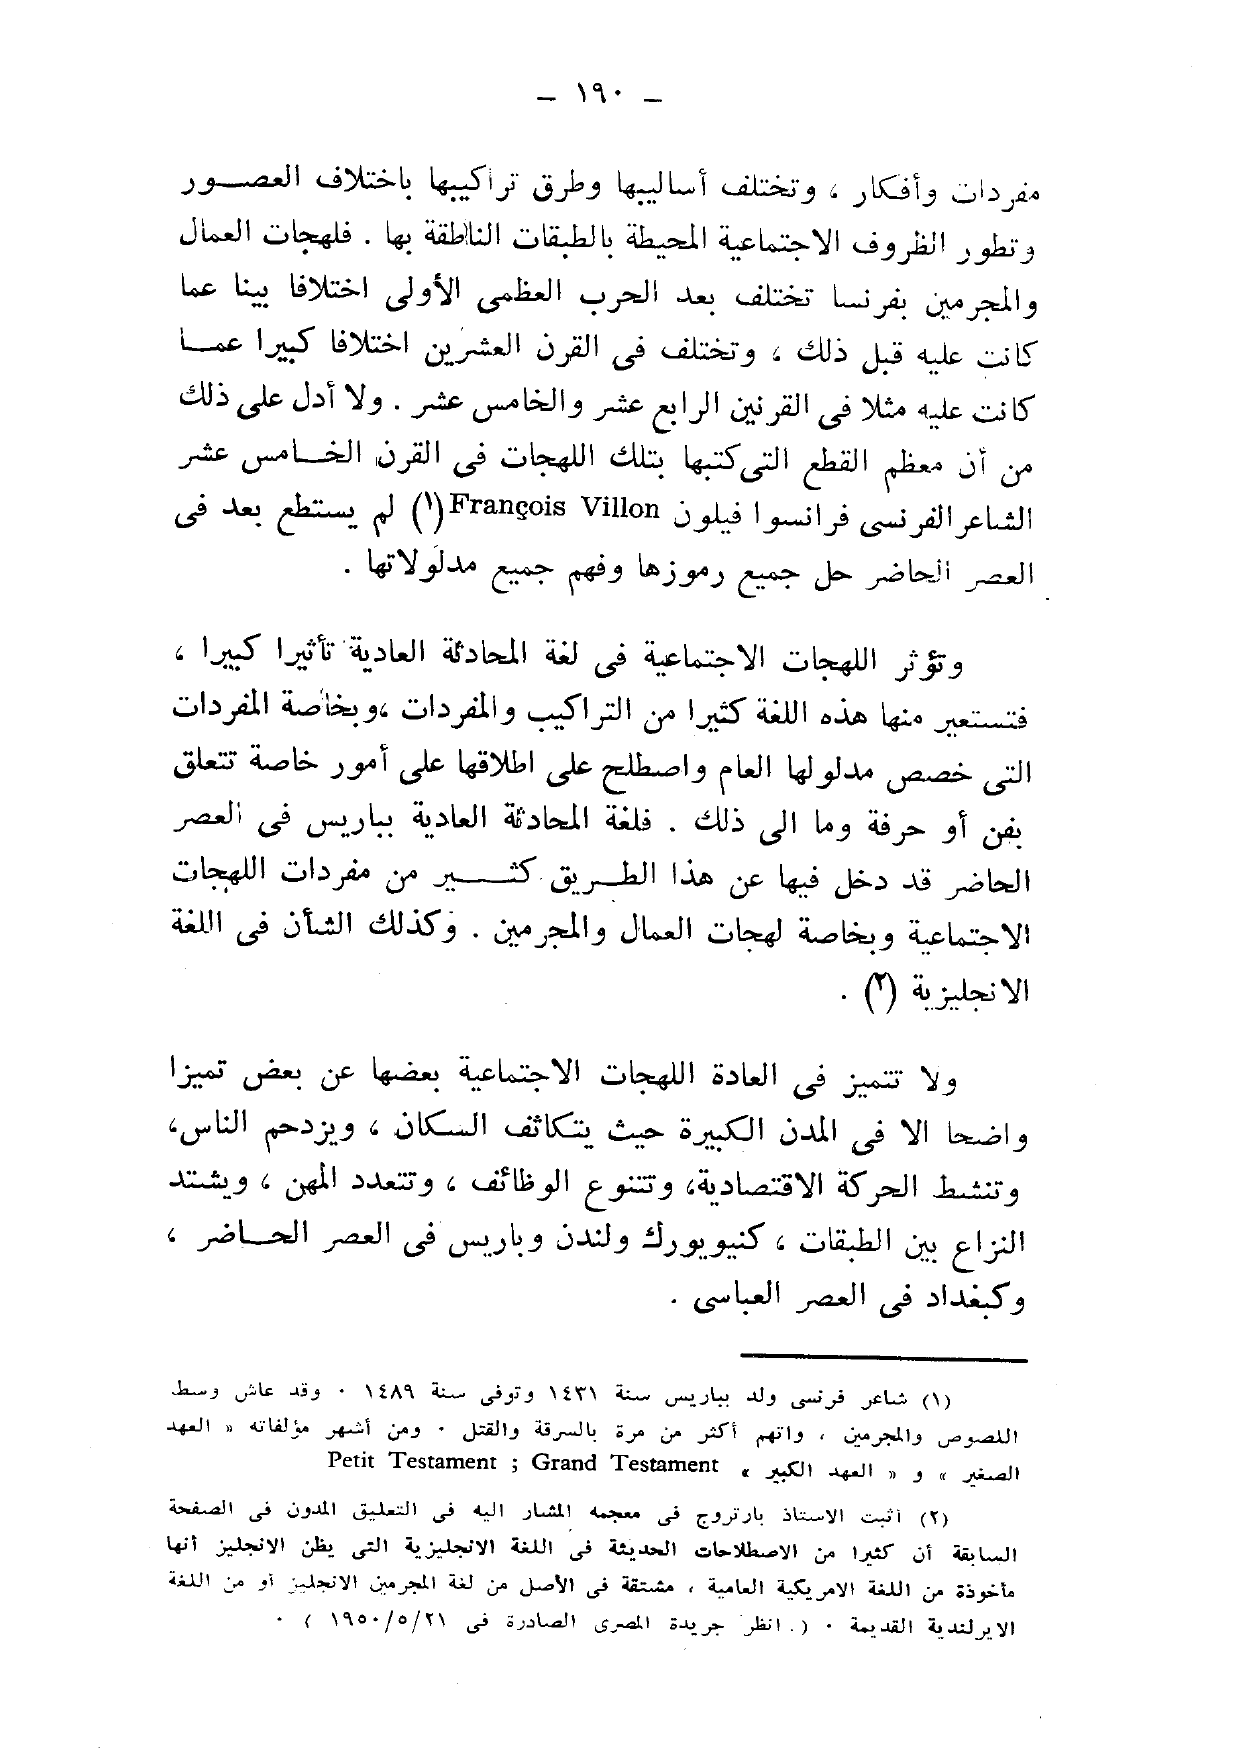 – ١٩٠ –
مفردات وأفكار ، وتختلف أساليبها وطرق تراكيبها باختلاف العصور
وتطور الظروف الاجتماعية المحيطة بالطبقات الناطقة بها . فلهجات العمال
والمجرمين بفرنسا تختلف بعد الحرب العظمى الأولى اختلافا بينا عما
كانت عليه قبل ذلك ، وتختلف فى القرن العشرين اختلافا كبيرا عما
كانت عليه مثلا فى القرنين الرابع عشر والخامس عشر . ولا أدل على ذلك
من أن معظم القطع التى كتبها بتلك اللهجات فى القرن الخامس عشر
الشاعر الفرنسى فرانسوا فيلون François Villon (١) لم يستطع بعد فى
العصر الحاضر حل جميع رموزها وفهم جميع مدلولاتها .
وتؤثر اللهجات الاجتماعية فى لغة المحادثة العادية تأثيرا كبيرا ،
فتستعير منها هذه اللغة كثيرا من التراكيب والمفردات ،وبخاصة المفردات
التى خصص مدلولها العام واصطلح على اطلاقها على أمور خاصة تتعلق
بفن أو حرفة وما الى ذلك . فلغة المحادثة العادية بباريس فى العصر
الحاضر قد دخل فيها عن هذا الطريق كثير من مفردات اللهجات
الاجتماعية وبخاصة لهجات العمال والمجرمين . وكذلك الشأن فى اللغة
الانجليزية (٢) .
ولا تتميز فى العادة اللهجات الاجتماعية بعضها عن بعض تميزا
واضحا الا فى المدن الكبيرة حيث يتكاثف السكان ، ويزدحم الناس،
وتنشط الحركة الاقتصادية، وتتنوع الوظائف ، وتتعدد المهن ، ويشتد
النزاع بين الطبقات ، كنيويورك ولندن وباريس فى العصر الحاضر ،
وكبغداد فى العصر العباسى .
(١) شاعر فرنسى ولد بباريس سنة ١٤٣١ وتوفى سنة ١٤٨٩ . وقد عاش وسط
اللصوص والمجرمين ، واتهم أكثر من مرة بالسرقة والقتل . ومن أشهر مؤلفاته « العهد
الصغير » و « العهد الكبير » Petit Testament ; Grand Testament
(٢) أثبت الاستاذ بارتروج فى معجمه المشار اليه فى التعليق المدون فى الصفحة
السابقة أن كثيرا من الاصطلاحات الحديثة فى اللغة الانجليزية التى يظن الانجليز أنها
مأخوذة من اللغة الامريكية العامية ، مشتقة فى الأصل من لغة المجرمين الانجليز أو من اللغة
الايرلندية القديمة . ( انظر جريدة المصرى الصادرة فى ١٩٥٠/٥/٢١ ) .